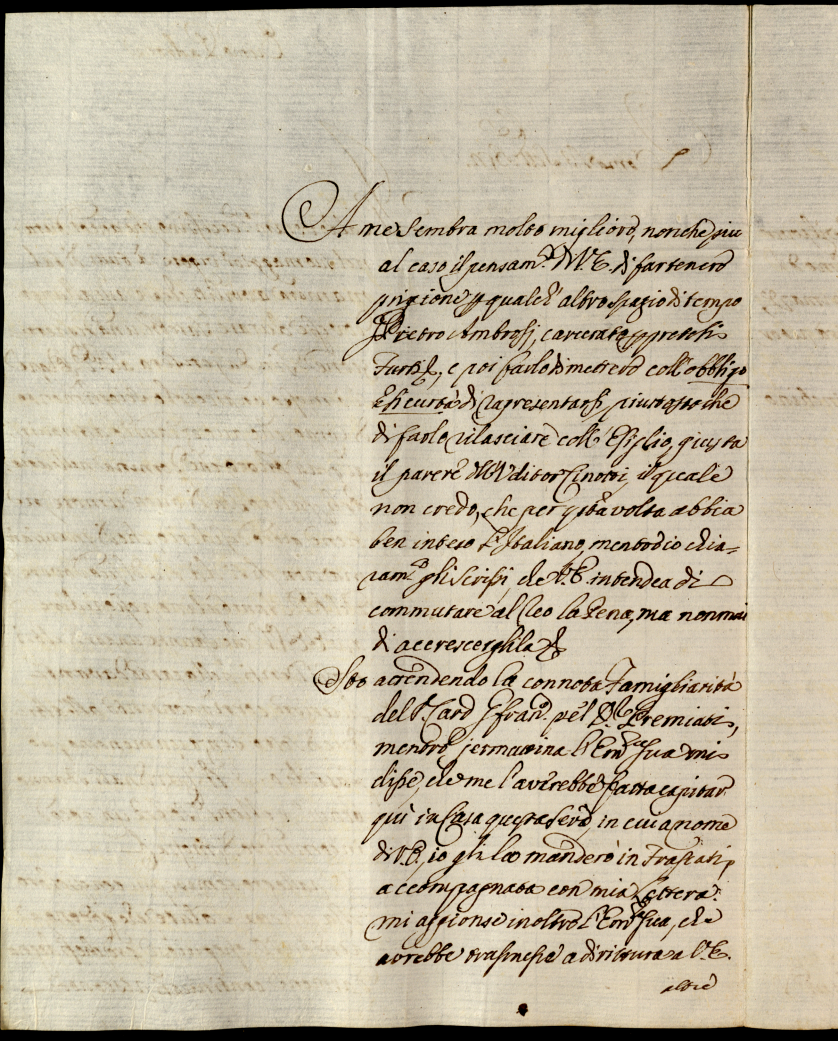 A me sembra molto migliore, nonche piu
al caso il pensam.to di V.E. di far tenere
prigione p qualch' altro spazio di tempo
Pietro Ambrosj, carcerato p pretesi
Furti, e poi farlo dimettere coll' obbligo
e sicurtà di rapresentarsi piuttosto che
di farlo rilasciare coll' Esiglio, giusta
il parere dell' Uditor Cinotti, il quale
non credo, che per q.sta volta abbia
ben inteso l' Italiano, mentre io chia=
ram.te gli scrissi, che V.E. intendea di
commutare al Reo la Pena, ma non mai
di accrescerghila
Sto attendendo la connota Famigliarità
del S. Card Gfran. pel Premiati,
mentre jermattina l' Em.za Sua mi
disse, che me l' averebbe fatta capitar
qui in Casa questa sera, in cui a nome
di V.E, io gli la manderò in Frascati,
accompagnata con mia Lettera.
mi aggionse inoltre l' Em.za Sua, che
avrebbe trasmesse a dirittura a V.E.
altre